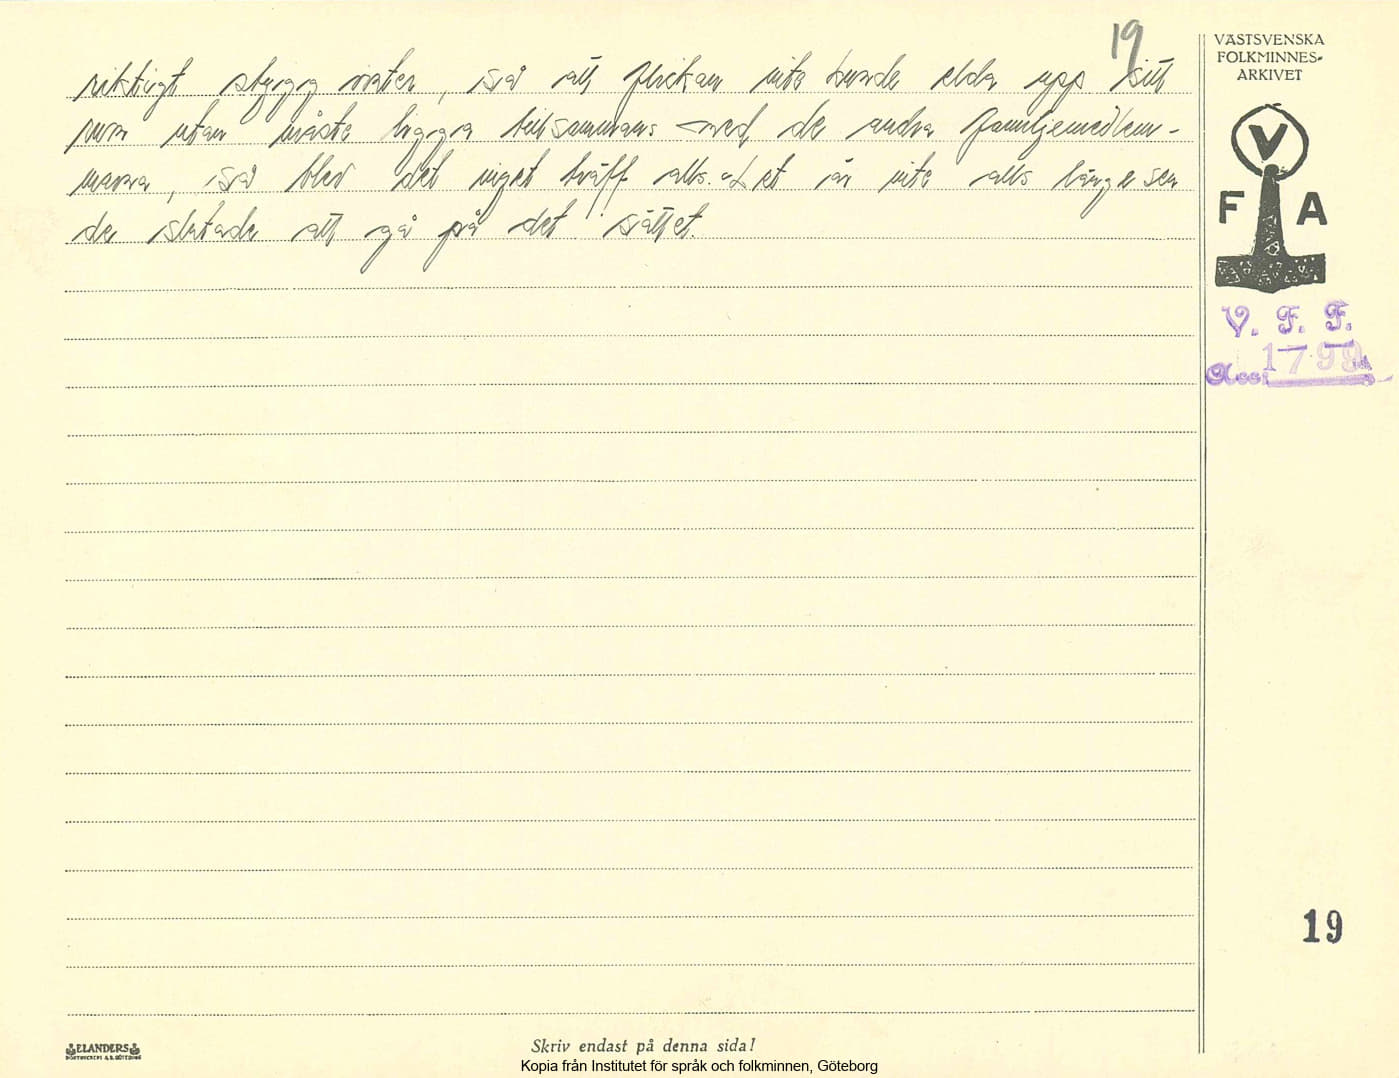 19
VÄSTSVENSKA
FOLKMINNES-
ARKIVET
riktigt stygg vinter, så att flickan inte kunde elda upp sitt
rum utan måste ligga tillsammans med de andra familjemedlem-
marna, så blev det inget träff alls. Det är inte alls länge sen
de slutade att gå på det sättet.
V
F A
V. F. F.
Acc: 1798
19
ELANDERS
Skriv endast på denna sida!
Kopia från Institutet för språk och folkminnen, Göteborg